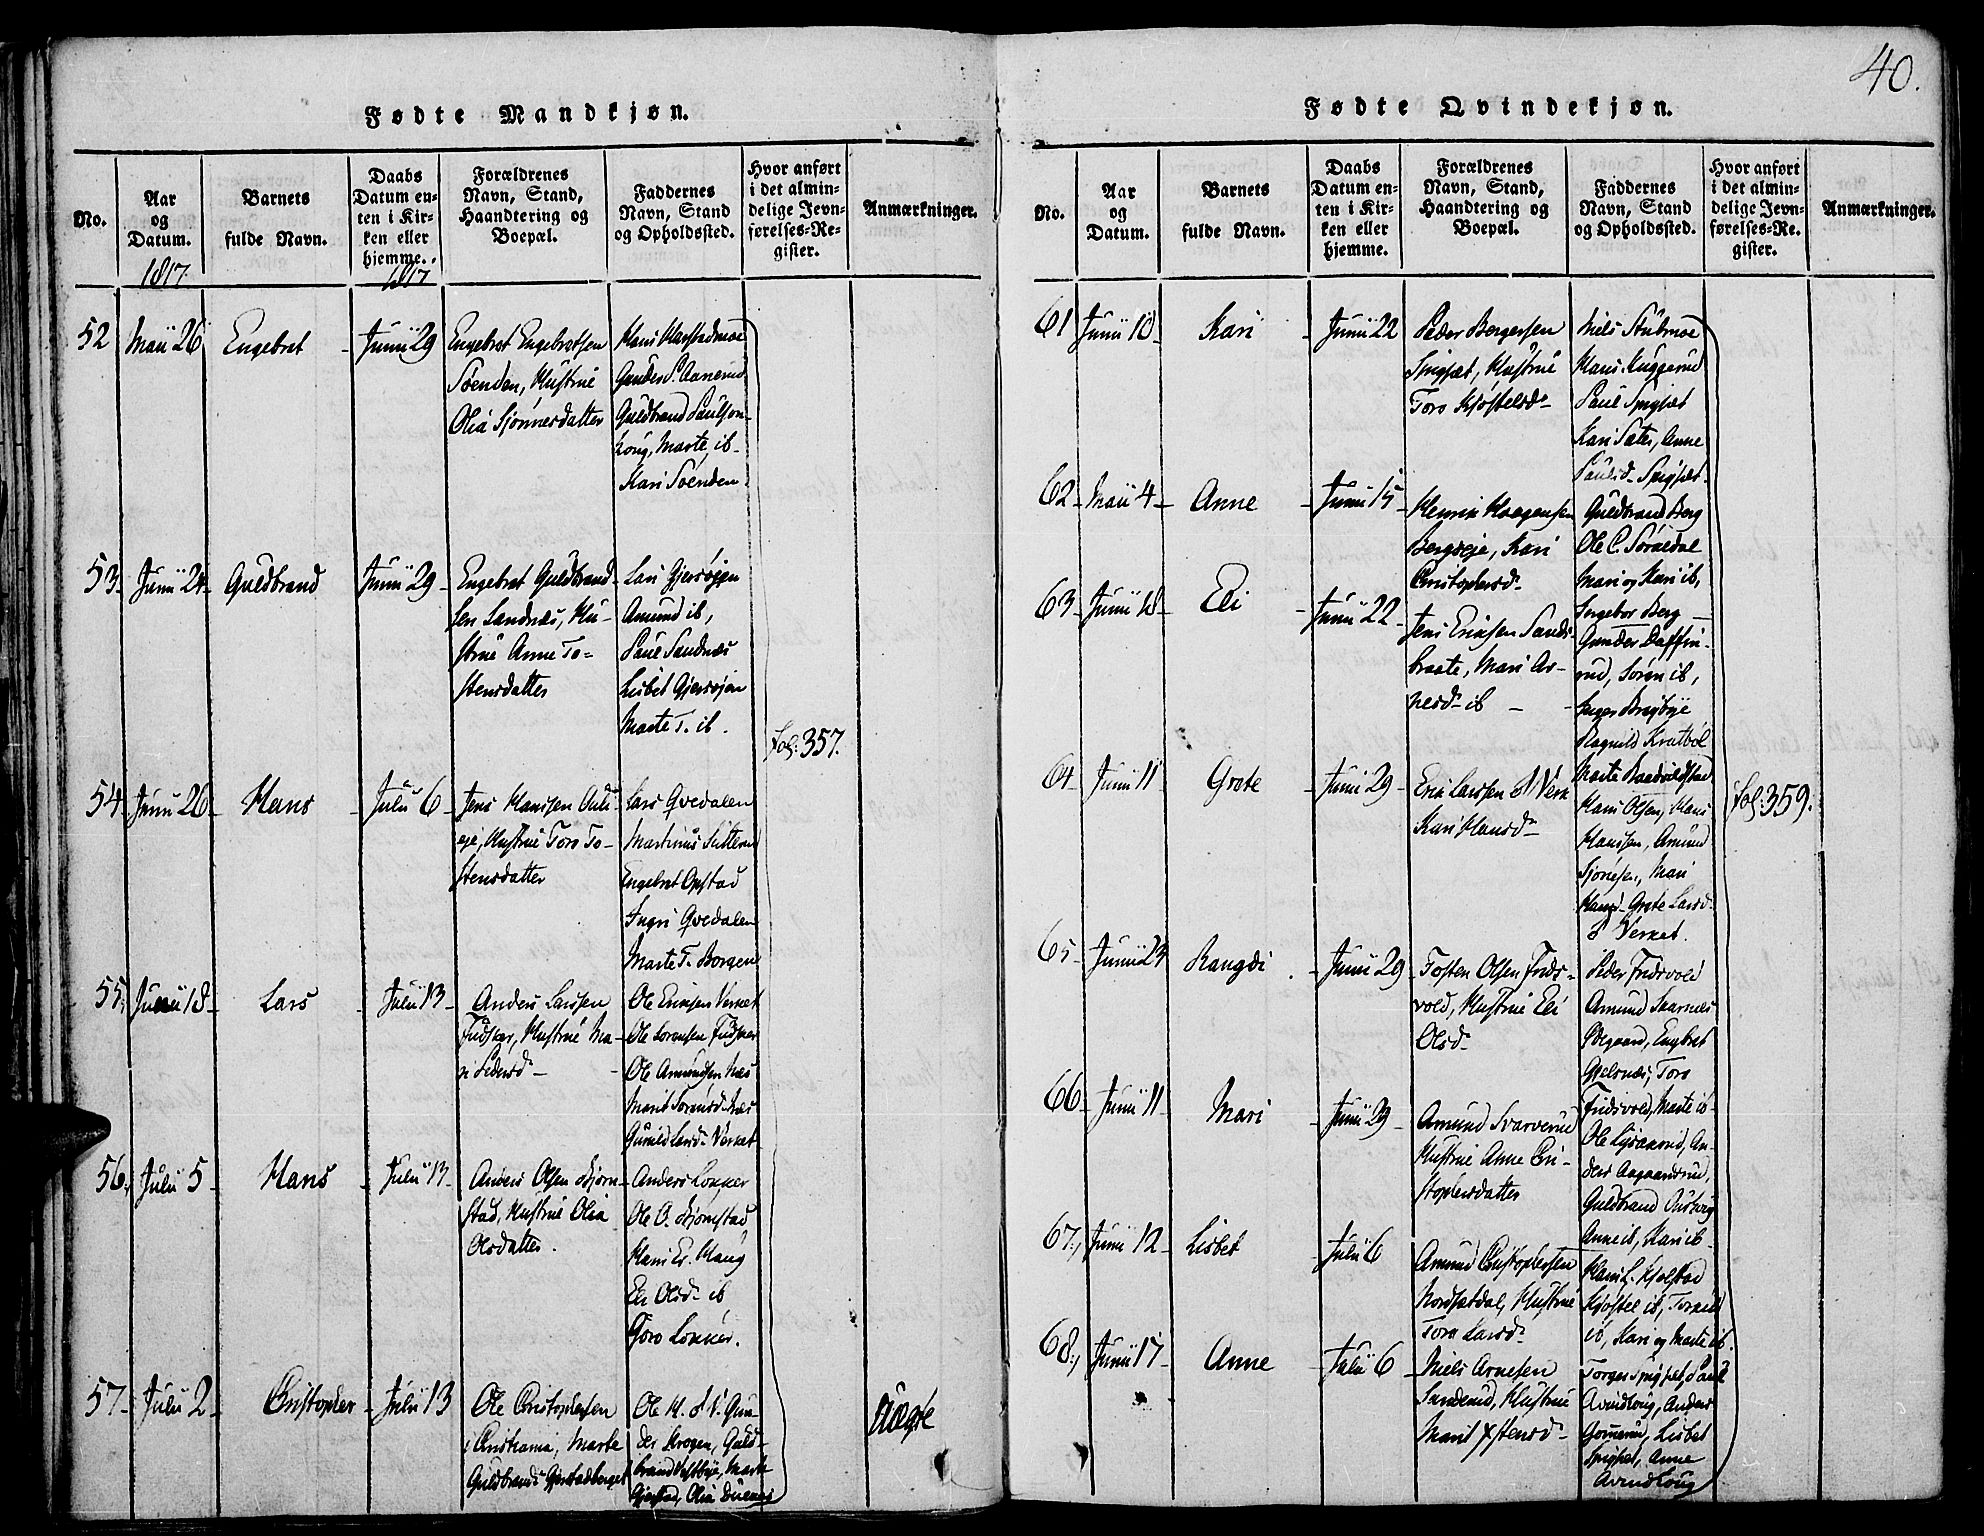 40.
Fødte Mandkjøn.
No.
Aar og Datum.
Barnets fulde Navn.
Daabs Datum enten i Kirken eller hjemme.
Forældrenes Navn, Stand, Haandtering og Boepæl.
Faddernes Navn, Stand og Opholdssted.
Hvor anført i det almindelige Jevnførelses-Register.
Anmærkninger.
1817
1817
52
Maii 26
Engebret
Junii 29
Engebret Engebretsen
Søenden, Hustrue
Olia Sjønnesdatter
Gulbrand Paulson
Marte, ib
Kari Søenden
53
Junii 24
Guldbrand
Junii 29
Engebret Guldbrand-
sen Sandnæs, Hu-
strue Anne To-
stensdatter
Lars Gjersøjen
Amund ib,
Paul Sandnæs
Lisbet Gjersøjen
Marte T. ib.
fol: 357.
54
Junii 26
Hans
Julii 6
Jens Hansen
eje, Hustrue Toro To-
stensdatter
Lars Qvedalen
Martinus
Engebret Opstad
Ingri Qvedalen
Marte T. Borgen
55
Junii 18
Lars
Julii 13
Anders Larssen
Hustrue Ma-
ri Pedersd
Ole Eriksen Verket
Ole Sørensen
Ole Amundsen Næs
Marit Sørensd Næs
Gunild Larsd Verket
56
Julii 5
Hans
Julii 13
Anders Olsen Bjørn-
stad, Hustrue Olia
Olsdatter.
Anders Løkker
Ole O. Bjørnstad
Hans Er. Haug
Eli Olsd ib
Goro Løkker.
57
Julii 2
Christopher
Julii 13
Ole Christophersen
i Christiania, Marte
Guldbrandsd Gjerstadberget
Ole H.
Krogen, Guld-
brand Vestbye, Marte
Gjerstad, Olia
uægte
Fødte Qvindekjøn.
No.
Aar og Datum.
Barnets fulde Navn.
Daabs Datum enten i Kirken eller hjemme.
Forældrenes Navn, Stand, Haandtering og Boepæl.
Faddernes Navn, Stand og Opholdssted.
Hvor anført i det almindelige Jevnførelses-Register.
Anmærkninger.
61
Junii 10
Kari
Junii 22
Peder Bergersen
Spigset, Hustrue
Toro Kjøstelsd
Niels Stubrue
Hans Kuggerud
Paul Spigset
Kari Sæter, Anne
Paulsd Spigset
62
Maii 4
Anne
Junii 15
Henrik Haagensen
Bergseje, Kari
Christophersd
Guldbrand Berg
Ole C. Sørnedal
Mari og Kari ib,
Ingebor Berg
63
Junii 18
Eli
Junii 22
Jens Eriksen Sands-
braate, Mari Ar-
nesd ib
Gunder Daffin-
rud, Søren ib,
Inger Brugbye
Ragnild Kratbøl
Marte
64
Junii 11
Grete
Junii 29
Erik Larssen O Verk
Kari Hansd
Hans Olsen, Hans
Hanssen, Amund
Sjønesen, Mari
Hansd Grete Larsd
O Verket.
fol: 359.
65
Junii 24
Rangdi
Junii 29
Tosten Olsen Frids-
vold, Hustrue Eli
Olsd
Peder Fridsvold
Amund Skarnæs
Ødegaard, Engebret
Gjelsnæs, Toro
Fridsvold, Marte ib
66
Junii 11
Mari
Junii 29
Amund Svarverud
Hustrue Anne Chri-
stophersdatter
Ole Lysaarud, An-
ders Aagaardsrud,
Guldbrand
Anne ib, Kari ib
67
Junii 12
Lisbet
Julii 6
Amund Christophersen
Nordsetdal, Hustrue
Toro Larsd
Hans L. Kjølstad
Kjøstel ib,
ib, Kari og Marte ib.
68
Junii 17
Anne
Julii 6
Niels Arnesen
Sanderud, Hustrue
Marit
Torger Spigset, Paul
Avindhoug, Anders
Lisbet
Spigset, Anne
Avindhoug